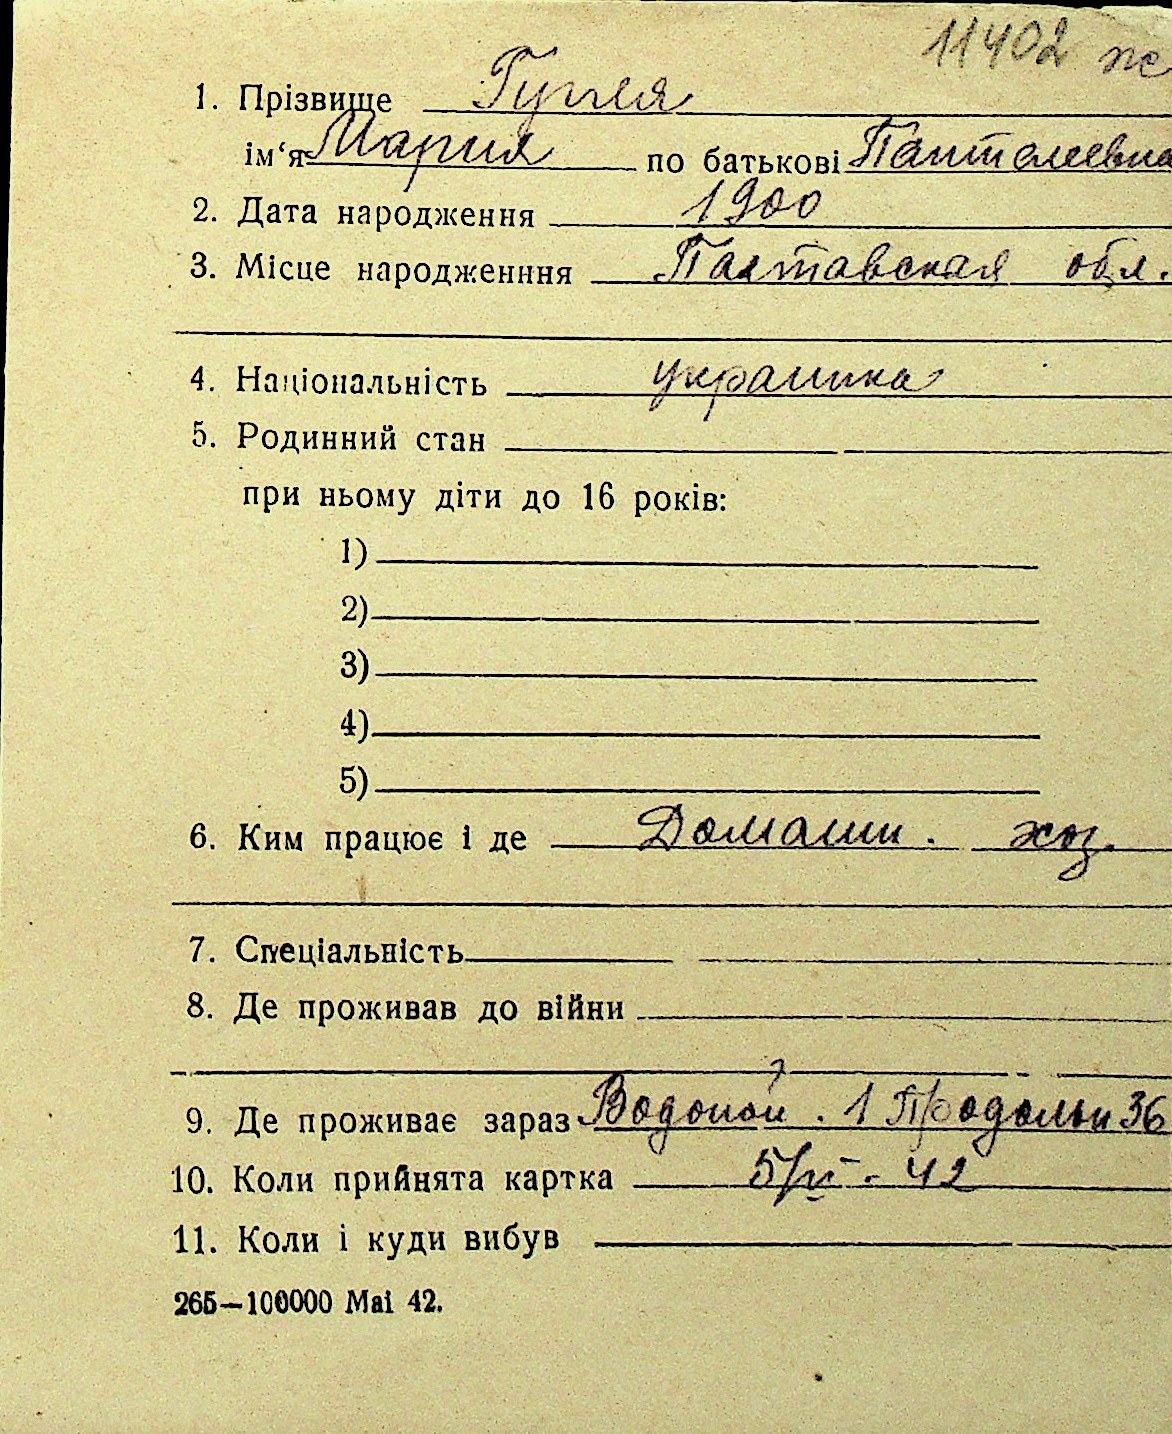 11402 ж
1. Прізвище Гугля
ім‘я Мария по батькові Пантелеевна
2. Дата народження 1900
3. Місце народженння Палтавская обл.
4. Національність украинка
5. Родинний стан
при ньому діти до 16 років:
1)
2)
3)
4)
5)
6. Ким працює і де Домашн. хоз.
7. Спеціальність
8. Де проживав до війни
9. Де проживає зараз Водопой . 1 Продольн 36
10. Коли прийнята картка 5/VI - 42
11. Коли і куди вибув
265—100000 Маі 42.